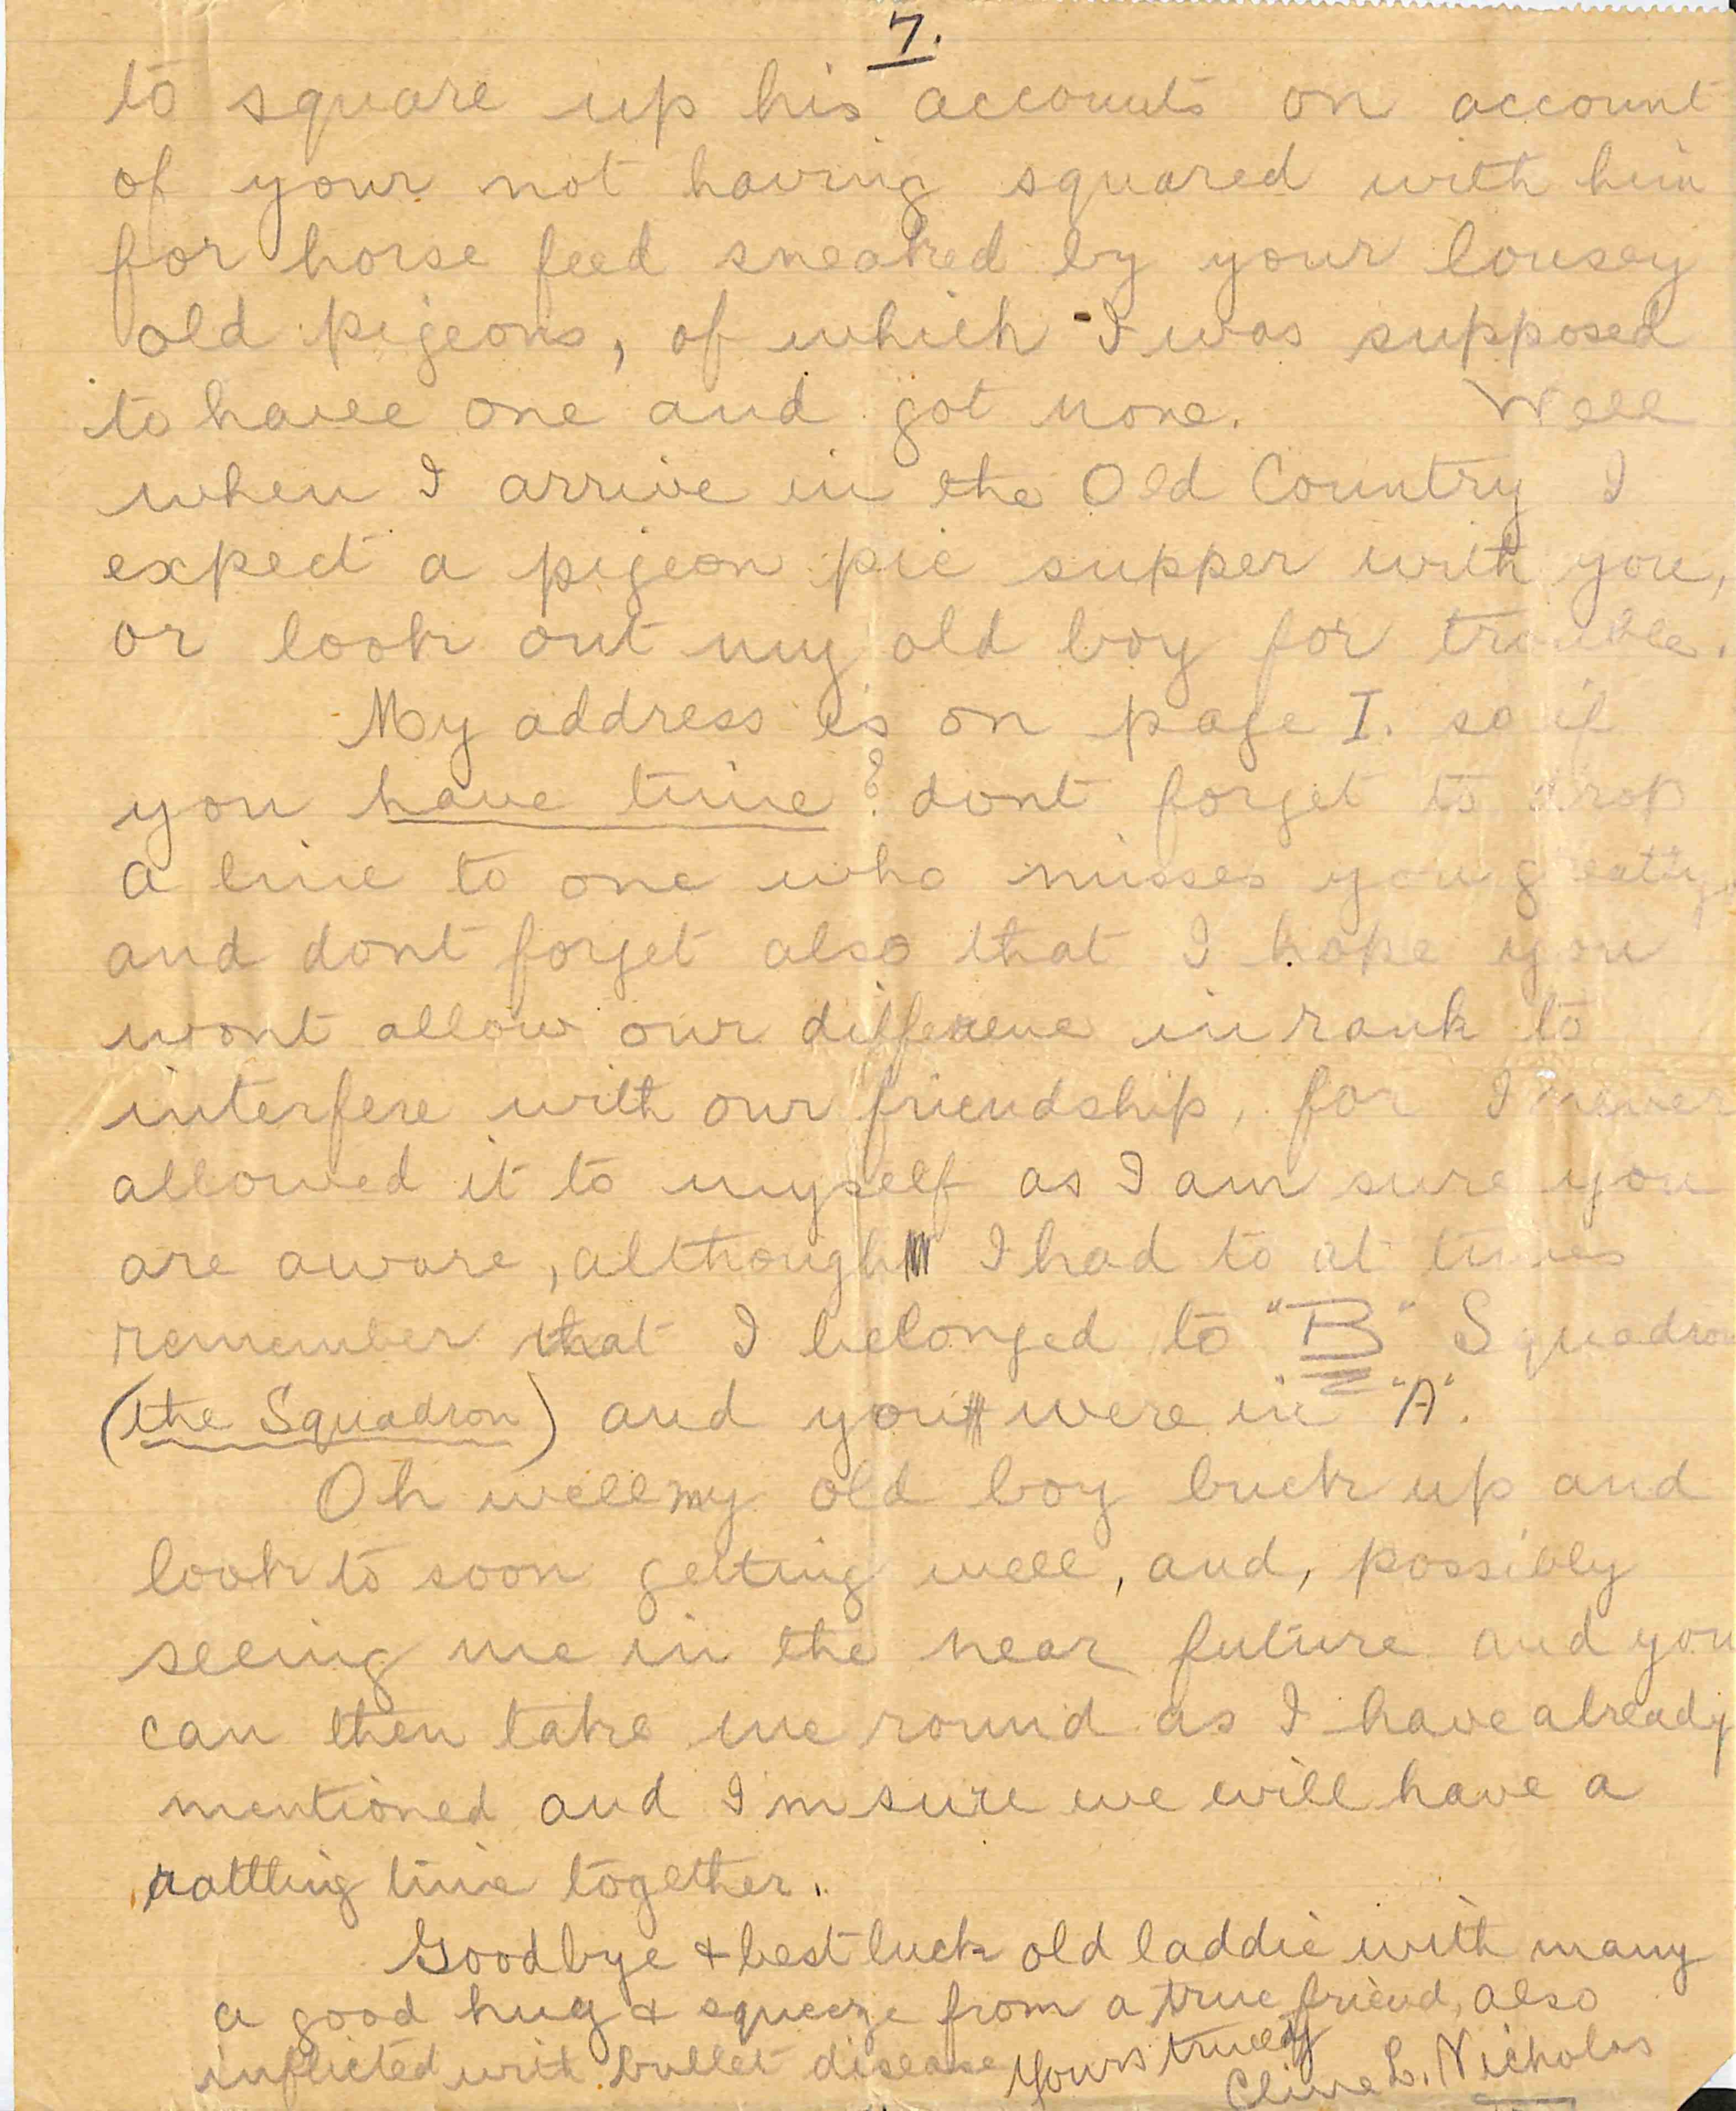 7.
to square up his accounts on account
of your not having squared with him
for horse feed sneaked by your lousey
old pigeons, of which I was supposed
to have one and got none. Well
when I arrive in the Old Country I
expect a pigeon pie supper with you,
or look out my old boy for trouble.
My address is on page I. so if
you have time ? dont forget to drop
a line to one who misses you greatly
and dont forget also that I hope you
wont allow our differene in rank to
interfere with our friendship, for I never
allowed it to myself as I am sure you
are aware, although I had to at times
remember that I belonged to "B" Squadron
(the Squadron) and you were in "A".
Oh well my old boy buck up and
look to soon getting well, and, possibly
seeing me in the near future and you
can then take me round as I have already
mentioned and I'm sure we will have a
rattling time together.
Goodbye + best luck old laddie with many
a good hug + squeeze from a true friend, also
inflicted with bullet disease Yours truely
Clive L. Nicholas